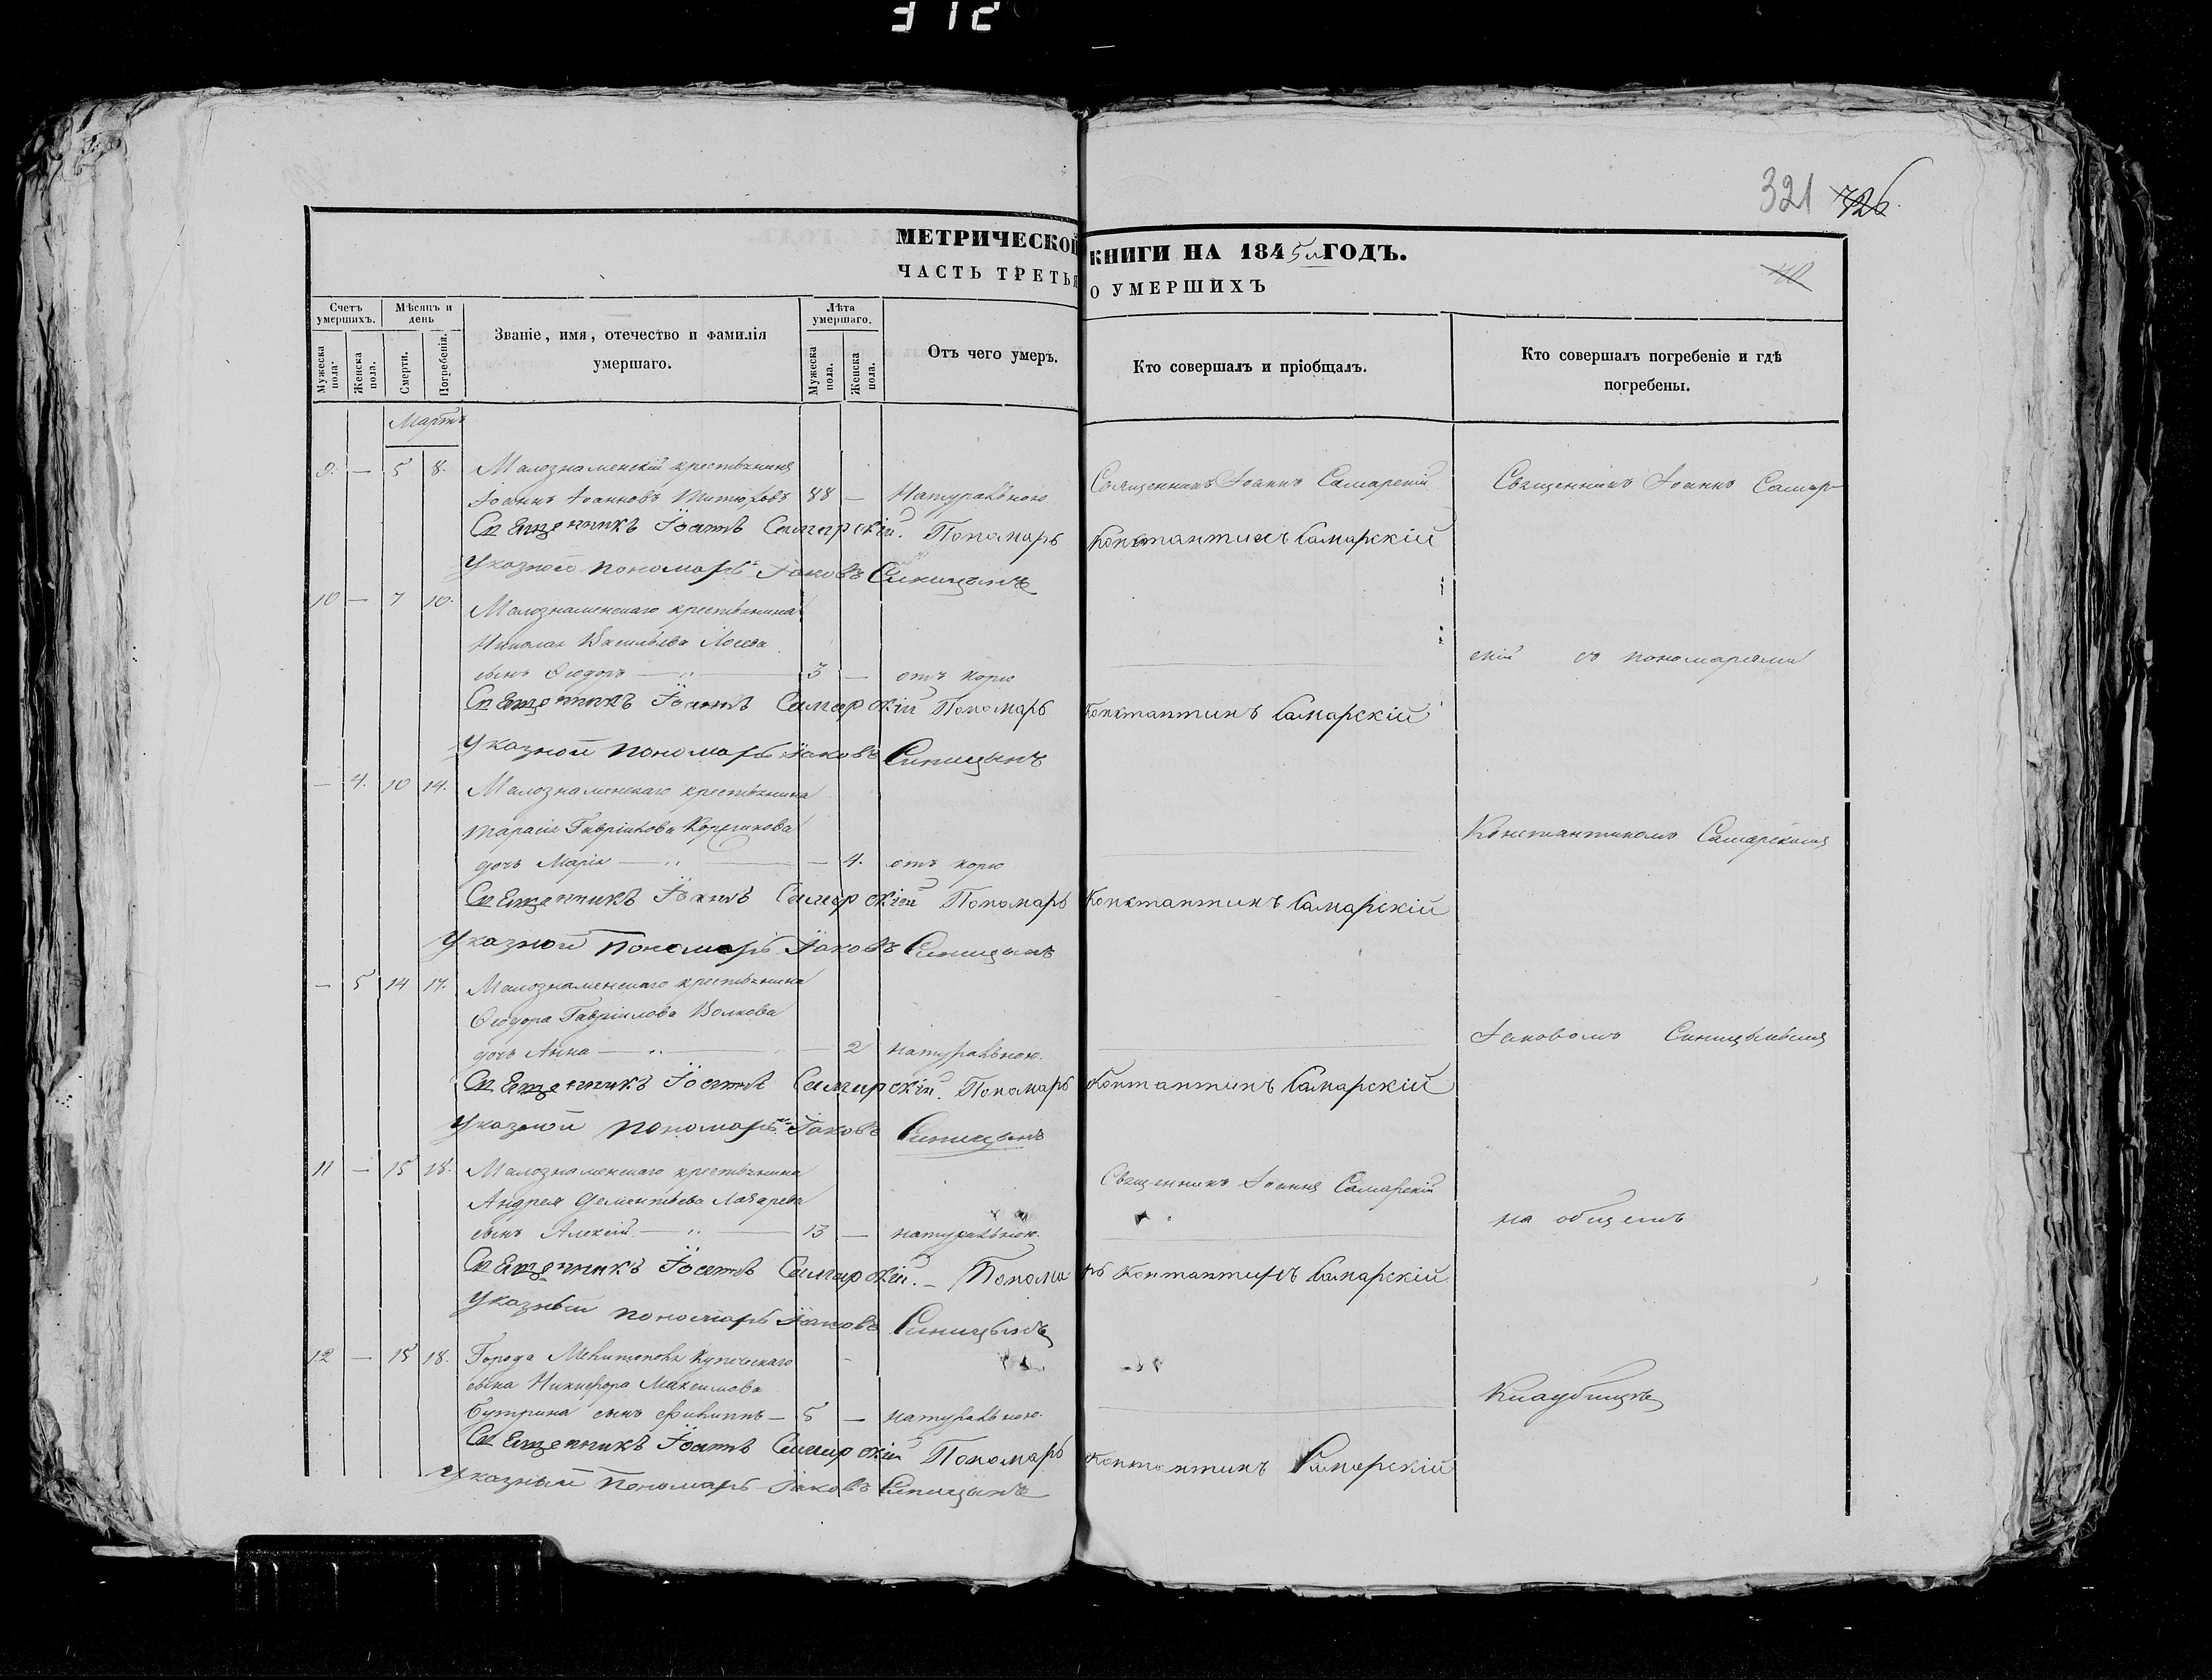 312
321 726
МЕТРИЧЕСКОЙ КНИГИ НА 1845й ГОДЪ.
ЧАСТЬ ТРЕТЬЯ О УМЕРШИХЪ
Счетъ умершихъ.
Мужеска пола.
Женска пола.
Мѣсяцъ и день
Смерти.
Погребенія.
Званіе, имя, отечество и фамилія
умершаго.
Лѣта умершаго.
Мужеска пола.
Женска пола.
Отъ чего умеръ.
Кто совершалъ и пріобщалъ.
Кто совершалъ погребеніе и гдѣ
погребены.
Мартъ
9. — 5 8. Малознаменскій крестьянинъ
Іоаннъ Іоанновъ 88 — Натуральною Священникъ Іоаннъ Самарскій Священникъ Іоаннъ Самар-
Священникъ Іоаннъ Самарскій. Пономарь Константинъ Самарскій
Указной пономарь Іаковъ Синицынъ
10 — 7 10. Малознаменскаго крестьянина
Николая Васильева Лосева
сынъ Ѳеодоръ — 3 — отъ корю скій съ пономарями
Священникъ Іоаннъ Самарскій Пономарь Константинъ Самарскій
Указной пономарь Іаковъ Синицынъ
— 4. 10 14. Малознаменскаго крестьянина
Тарасія Гавріилова
дочь Марія — — 4. отъ корю Константиномъ Самарскимъ
Священникъ Іоаннъ Самарскій Пономарь Константинъ Самарскій
Указной Пономарь Іаковъ Синицынъ
— 5 14 17. Малознаменскаго крестьянина
Ѳеодора Гавріилова Волкова
дочь Анна — — 2 натуральною. Іаковомъ Синицынымъ
Священникъ Іоаннъ Самарскій. Пономарь Константинъ Самарскій
Указной пономарь Іаковъ Синицынъ
11 — 15 18. Малознаменскаго крестьянина Священникъ Іоаннъ Самарскій
Андрея Дементьева Лазарева
сынъ Алексій — 13 — натуральною. на общемъ
Священникъ Іоаннъ Самарскій. — Пономарь Константинъ Самарскій
Указный пономарь Іаковъ Синицынъ
12 — 15 18. Города Мелитополя Купеческаго
сына Никифора Максимова
сынъ Филиппъ — 5 — натуральною. Кладбищѣ
Священникъ Іоаннъ Самарскій Пономарь Константинъ Самарскій
Указный Пономарь Іаковъ Синицынъ